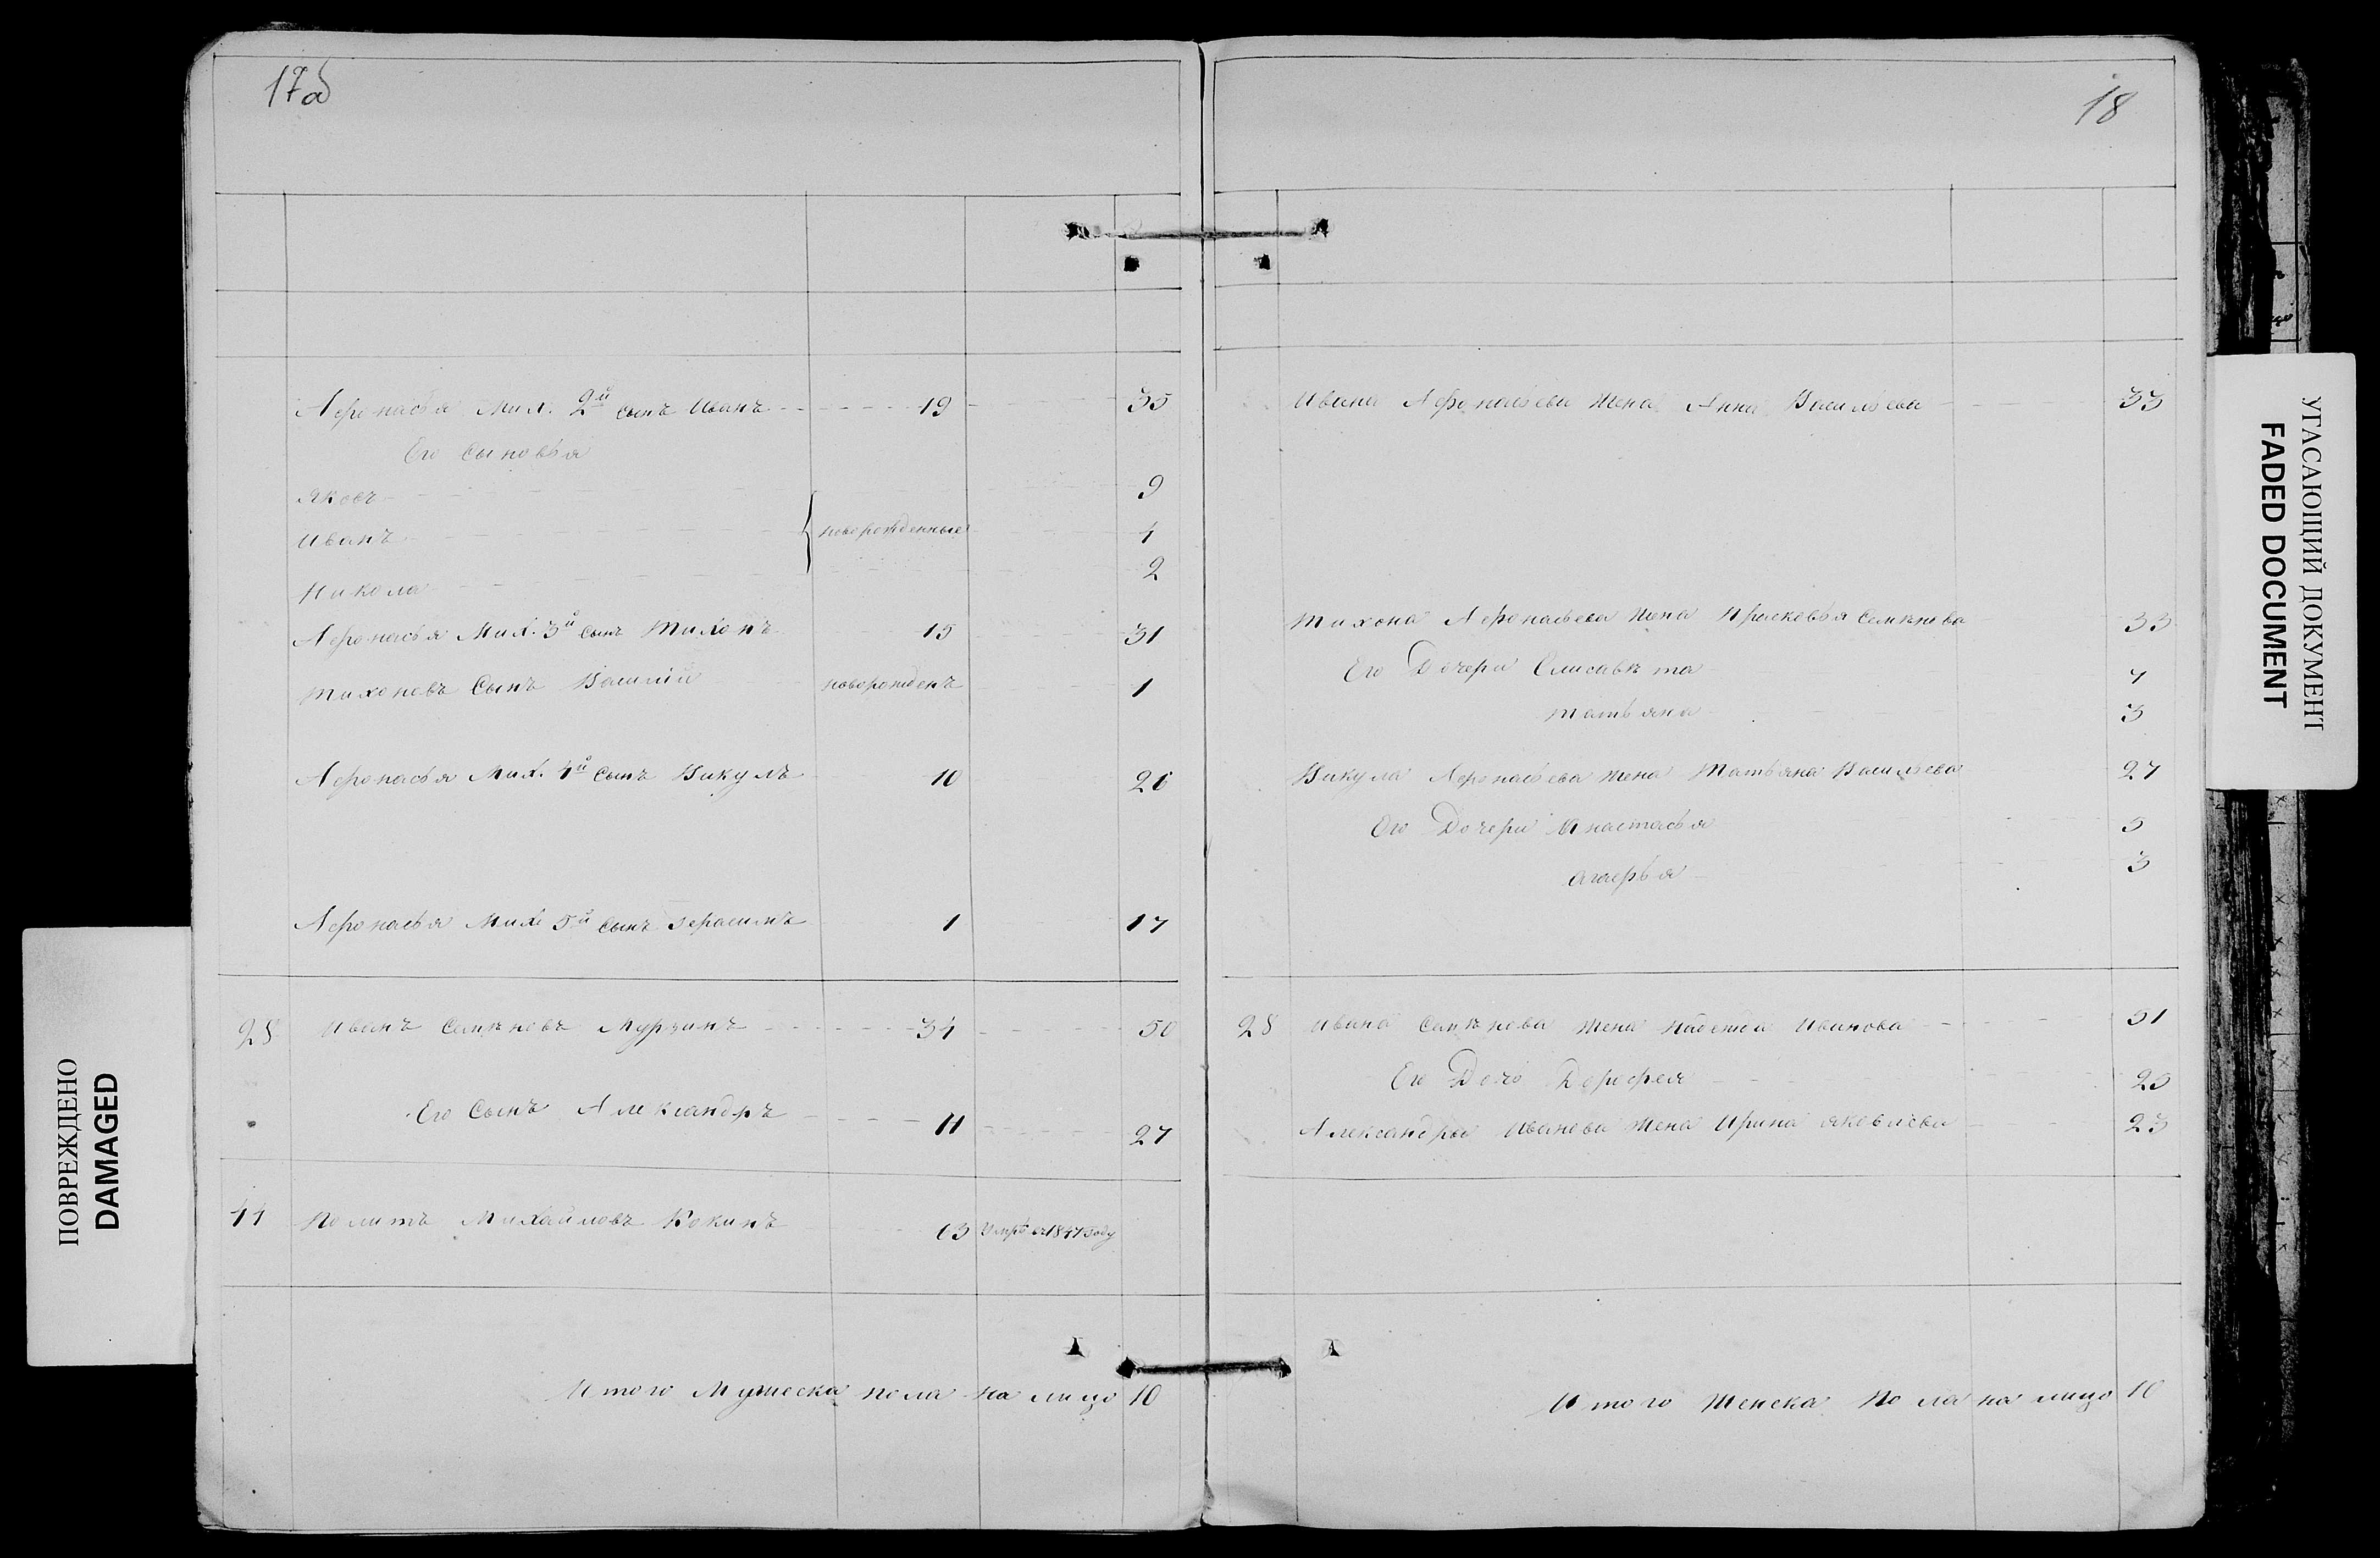 17об
Афонасья Мих. 2й сынъ Иванъ 19 35
Его сыновья
Яковъ 9
Иванъ новорожденные 4
Никола 2
Афонасья Мих. 3й сынъ Тихонъ 15 31
Тихоновъ Сынъ Василий новорожденъ 1
Афонасья Мих. 4й Сынъ Викулъ 10 26
Афонасья Мих. 5й Сынъ Герасимъ 1 17
28 Иванъ Семѣновъ Мурзинъ 34 50
Его Сынъ Александръ 11 27
44 Политъ Михайловъ Кокинъ 63 Умръ въ 1847 году
Итого Мужеска пола на лицо 10
18
Ивана Афонасьева Жена Анна Васильева 33
Тихона Афонасьева Жена Прасковья Семѣнова 33
Его Дочери Елисавѣта 7
Татьяна 3
Викула Афонасьева Жена Татьяна Васильева 27
Его Дочери Анастасья 5
Агафья 3
28 Ивана Семѣнова Жена Надежда Иванова 51
Его Дочь Дорофея 20
Александра Иванова Жена Ирина Яковлева 23
Итого Женска Пола на лицо 10
ПОВРЕЖДЕНО
DAMAGED
УГАСАЮЩИЙ ДОКУМЕНТ
FADED DOCUMENT